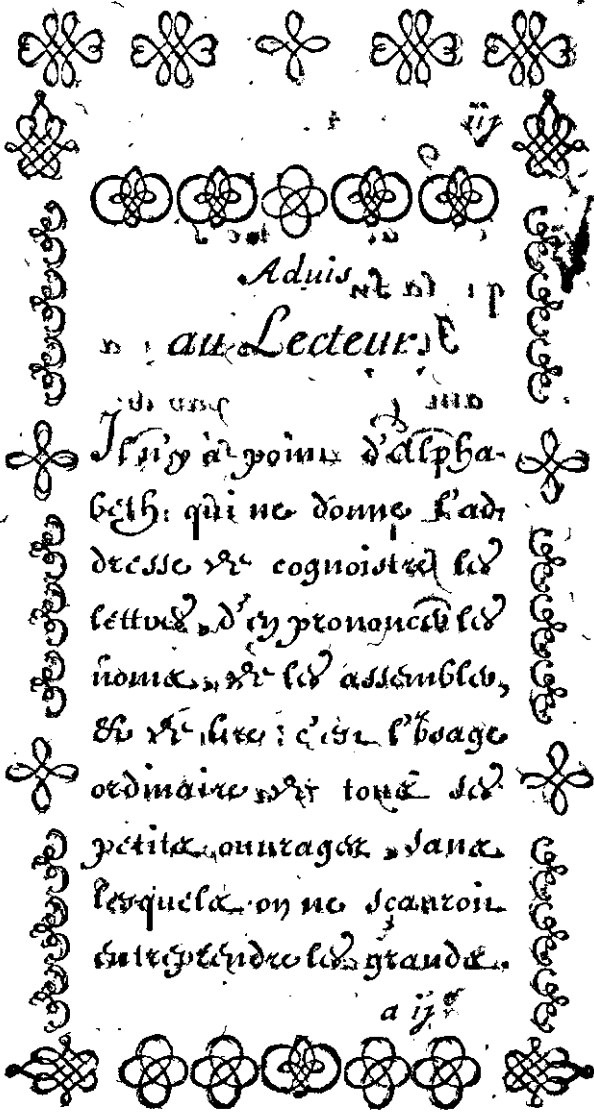 iij
Aduis
au Lecteur.
Il n'y à point d'Alpha-
beth: qui ne donne l'ad-
dresse de cognoistre les
lettres, d'en prononcer les
noms, de les assembler,
& de lire: c'est l'vsage
ordinaire de tous ces
petits ouurages, sans
lesquels on ne sçauroit
entreprendre les grands.
a ij